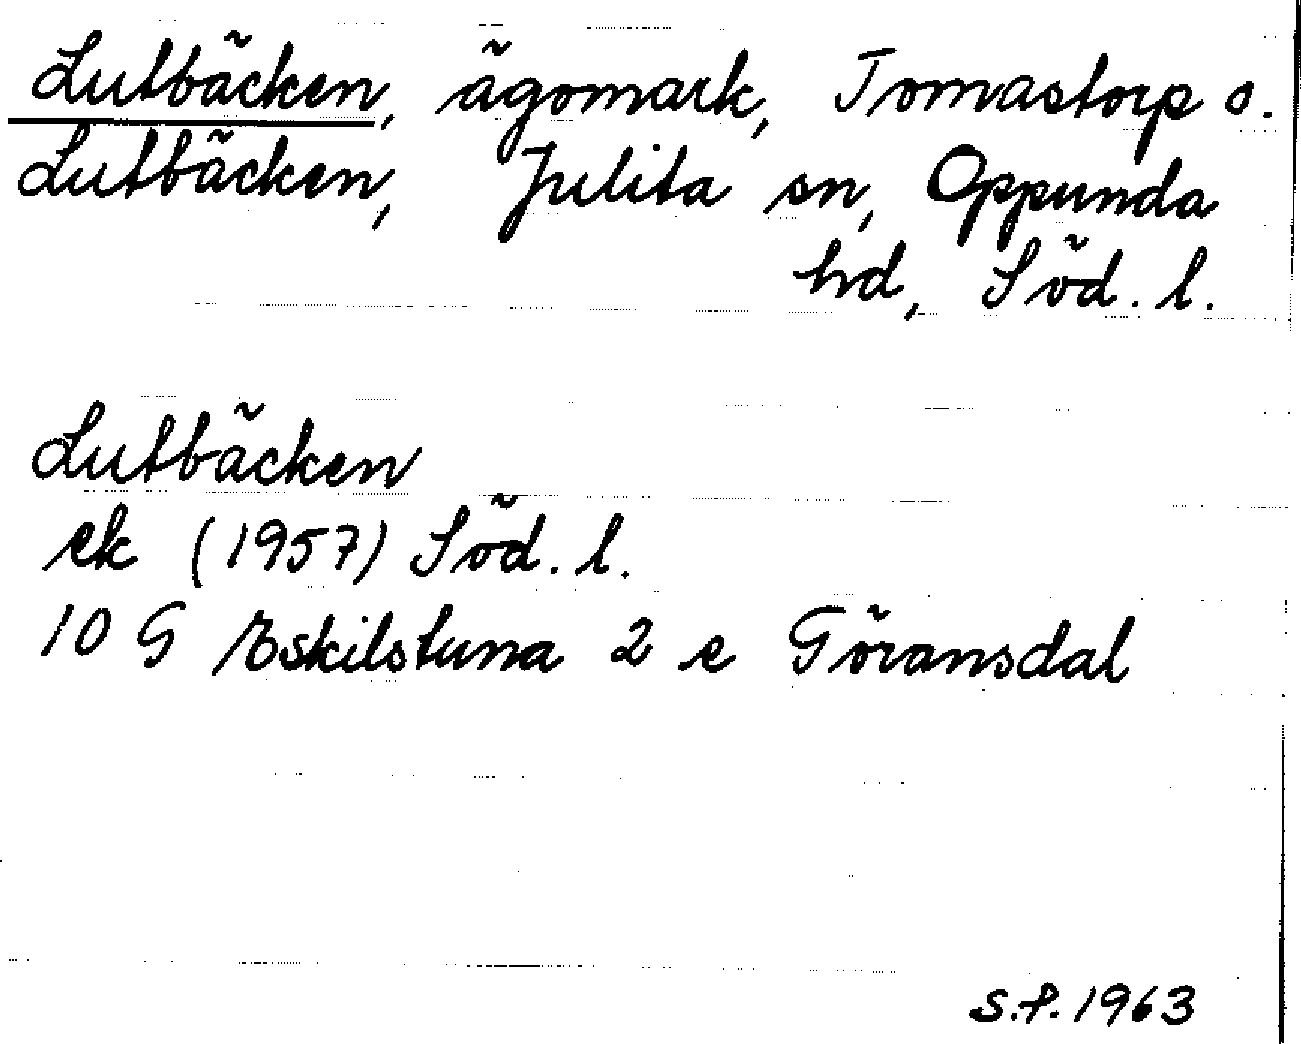 Lutbäcken, ägomark, Tomastorp o.
Lutbäcken, Julita sn, Oppunda
hd, Söd. l.
Lutbäcken
ek (1957) Söd. l.
10 G Eskilstuna 2 e Göransdal
S.P. 1963